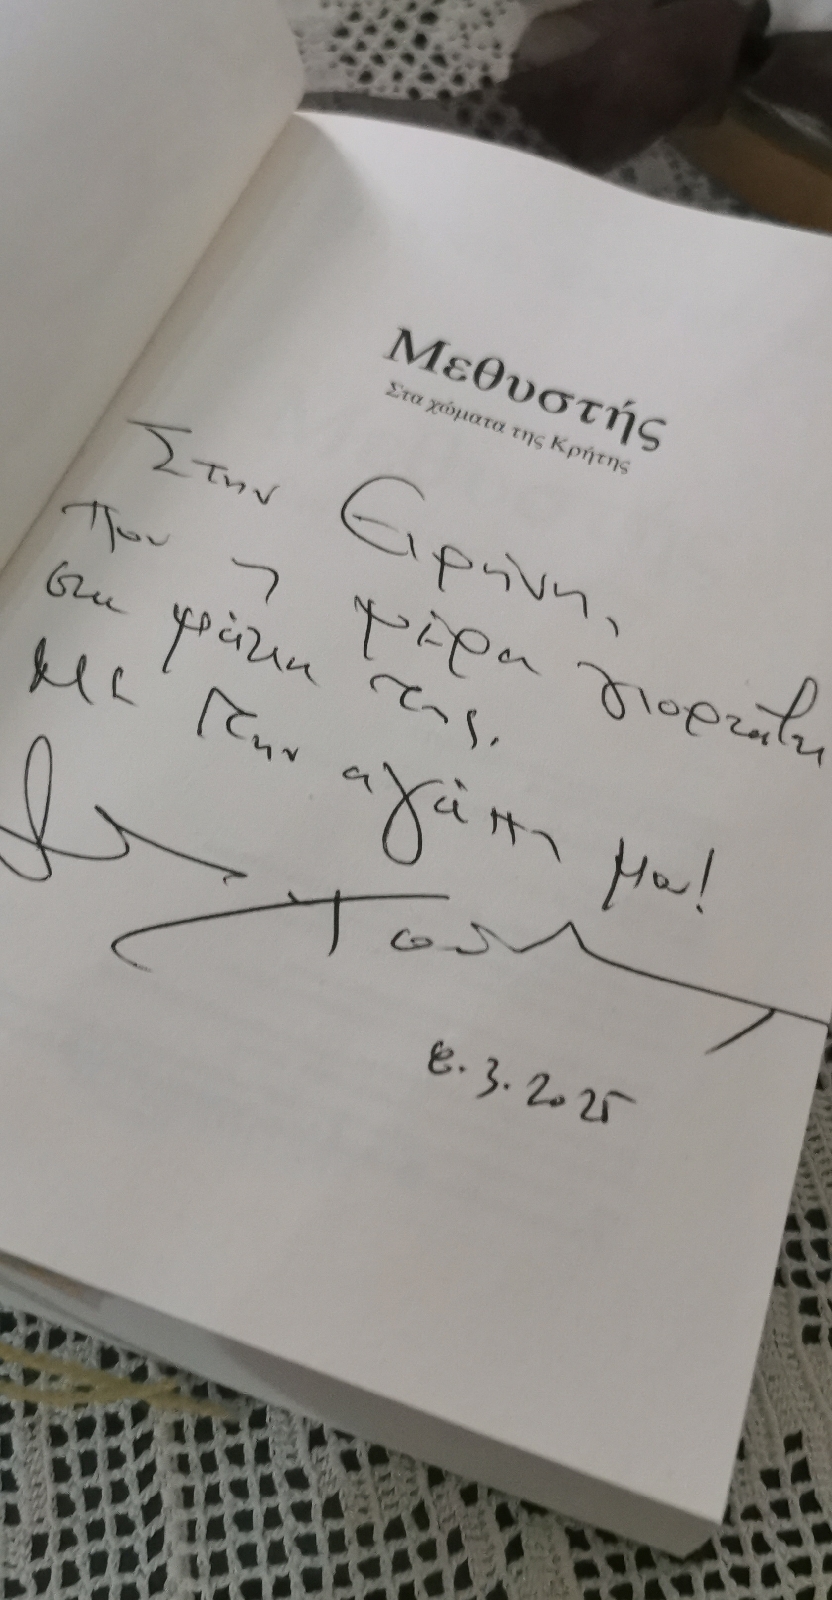 Μεθυστής
Στα χώματα της Κρήτης
Στην Ειρήνη,
που η μέρα γιορτάζει
στα μάτια της.
Με την αγάπη μου!
8.3.2025